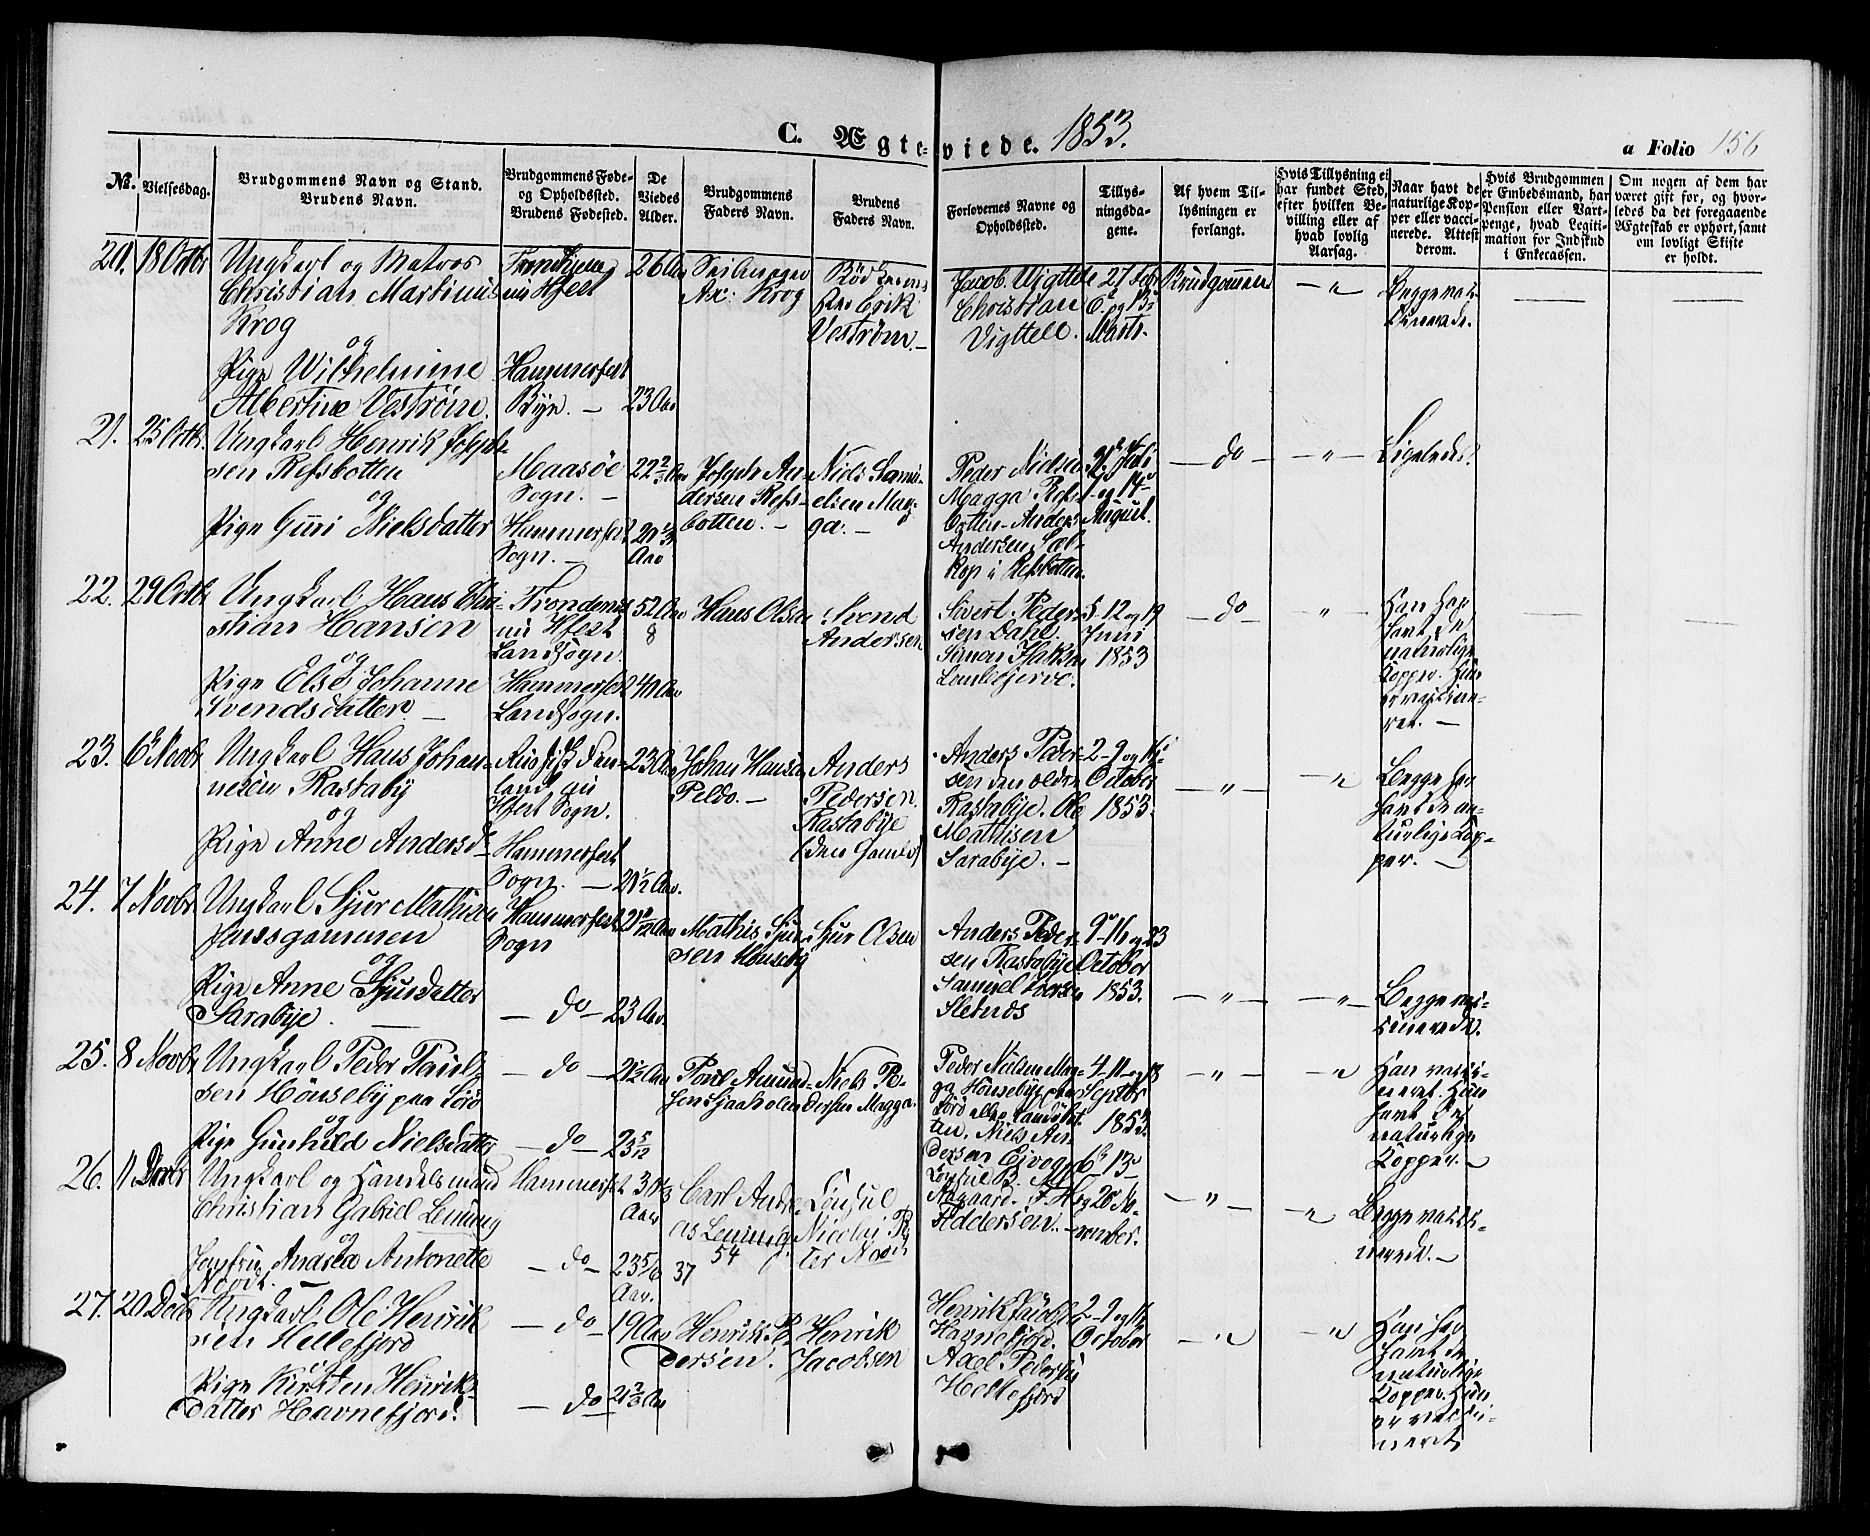 C. Ægte-viede. 1853.
a Folio 156
No.
Vielsesdag.
Brudgommens Navn og Stand.
Brudens Navn.
Brudgommens Føde-
og Opholdssted.
Brudens Fødested.
De
Viedes
Alder.
Brudgommens
Faders Navn.
Brudens
Faders Navn.
Forlovernes Navne og
Opholdssted.
Tillys-
ningsda-
gene.
Af hvem Til-
lysningen er
forlangt.
Hvis Tillysning ei
har fundet Sted,
efter hvilken Be-
villing eller af
hvad lovlig
Aarsag.
Naar havt de
naturlige Kop-
per eller vacci-
nerede. Attest
derom.
Hvis Brudgommen
er Embedsmand, har
Pension eller Vart-
penge, hvad Legiti-
mation for Indskud
i Enkecassen.
Om nogen af dem har
været gift før, og hvor-
ledes da det foregaaende
Ægteskab er ophørt, samt
om lovligt Skifte
er holdt.
20. 18 Octbr
Ungkarl og Matros
Christian Martinus
Krog
og
Pige Wilhelmine
Albertine Vestrøm.
Trondhjem
nu Hfest
Hammerfest
Bye. —
26 Aar
23 Aar
Ax: Krog
Erik
Vestrøm. —
Jacob Vigttel
Christian
Vigttell.
27 Febr
6. og 13
Marts.
Brudgommen
— " —
Begge vak-
sinerede.
21. 25 Octb.
Ungkarl Henrik Joseph-
sen Refsbotten
og
Pige Guri Nielsdatter
Maasøe
Sogn. —
Hammerfest
Sogn. —
22 2/3 Aar
20 1/3
Aar
Joseph An-
dersen Refs-
botten. —
Niels Samu-
elsen Mag-
ga. —
Peder Nielsen
Magga Refs-
botten - Anders
Andersen
Kop i Refsbotten.
31 Juli
7 og 14
August.
— do —
— " —
Ligeledes.
22. 29 Octb.
Ungkarl Hans Chri-
stian Hansen
og
Pige Else Johanne
Svendsdatter. —
Trondenes
nu Hfest
Landsogn.
Hammerfest
Landsogn.
52 Aar
8
40 Aar
Hans Olsen
Svend
Andersen
Sivert Peder-
sen Dahl.
Simon Isaksen
5-12 og 19
Juni
1853
— do —
"
Han har
havt de
naturlige
Kopper. Hun
er vaksine-
ret. —
23. 6 Novbr
Ungkarl Hans Johan-
nesen Rastaby
og
Pige Anne Andersd.
Russisk Fin-
land nu
Hfest Sogn.
Hammerfest
Sogn. —
23 Aar
20 1/2 Aar.
Johan Hansen
Peldo. —
Anders
Pedersen
Rastabye
(den Gamle)
Anders Peder-
sen den eldre
Rastabye. Ole
Mathisen
Sarabye. —
2-9 og 16
October
1853.
— " —
— "
Begge har
havt de na-
turlige Kop-
per. —
24. 7 Novbr
Ungkarl Sjur Mathisen
Jansgammen
og
Pige Anne Sjursdatter
Sarabye. —
Hammerfest
Sogn
— do —
23 Aar.
Mathis Sjur-
sen Hønseby
Sjur Olsen
Anders Peder-
sen Rastabye.
Samuel Iversen
Sletnes
9-16 og 23
October
1853.
— " —
— " —
Begge vac-
sinerede.
25. 8 Novbr
Ungkarl Peder Pauls-
sen Hønseby paa Sørø
og
Pige Gunhild Nielsdatter
— do —
— do —
23 5/12
Poul Amund-
sen Sjaaholmen
Niels Pe-
dersen Magga.
Peder Nielsen Mag-
ga Hønsebye paa
Niels An-
dersen
4-11 og 18
Septbr
1853.
— " —
— "
Han vaksi-
neret. Hun
havt de
naturlige
Kopper. —
26. 11 Decbr
Ungkarl og Handelsmand
Christian Gabriel Lening
og
Jomfru Andrea Antonette
Noodt. —
Hammerfest
— do —
Aar
23 5/6
Aar.
Carl Andre-
as Lening
37 54
Consul
Nicolai Pe-
ter Noodt
Consul B. M.
Aagaard. F. H.
Feddersen. —
6 13
og 20 No-
vember.
— " —
— "
Begge vaksi-
nerede. —
27. 20 Decbr
Ungkarl Ole Henrik-
sen Hellefjord
og
Pige Kirsten Henriks-
datter Havnefjord.
— do —
— do —
19 Aar
21 2/3 Aar
Henrik Pe-
dersen.
Henrik
Jacobsen
Henrik Jacobs.
Havnefjord.
Axel Pedersen
Hellefjord
2-9 og 16
October
— " —
— "
Han har
havt de
naturlige
Kopper. Hun
er vaksi-
neret